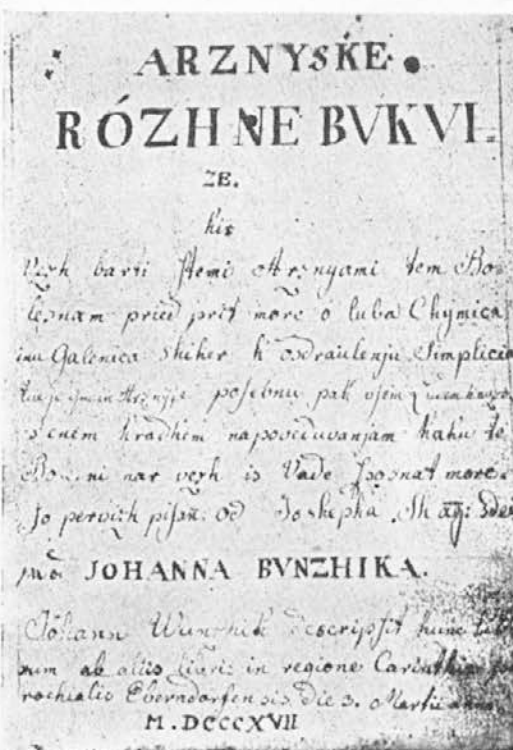 ARZNYSKE
RÓZHNE BVKVI=
ZE.
kir
Vezh barti stemi Arznyami tem Bo=
leznam pried prit more o luba Chymica
inu Galenica k osdraulenju Simplicia
posebnu pak vsem
s enem kradkim napoveduvanjam kaku te
nar vezh is Vade sposnat more.
Jo pervizh pissu od Joshepka
JOHANNA BVNZHIKA.
Johann Wunzhik descripsit hunc
ab aliis libris in regione Carinthia
rochialis Eberndorfensis. die 3. Martii anno
M.DCCCXVII